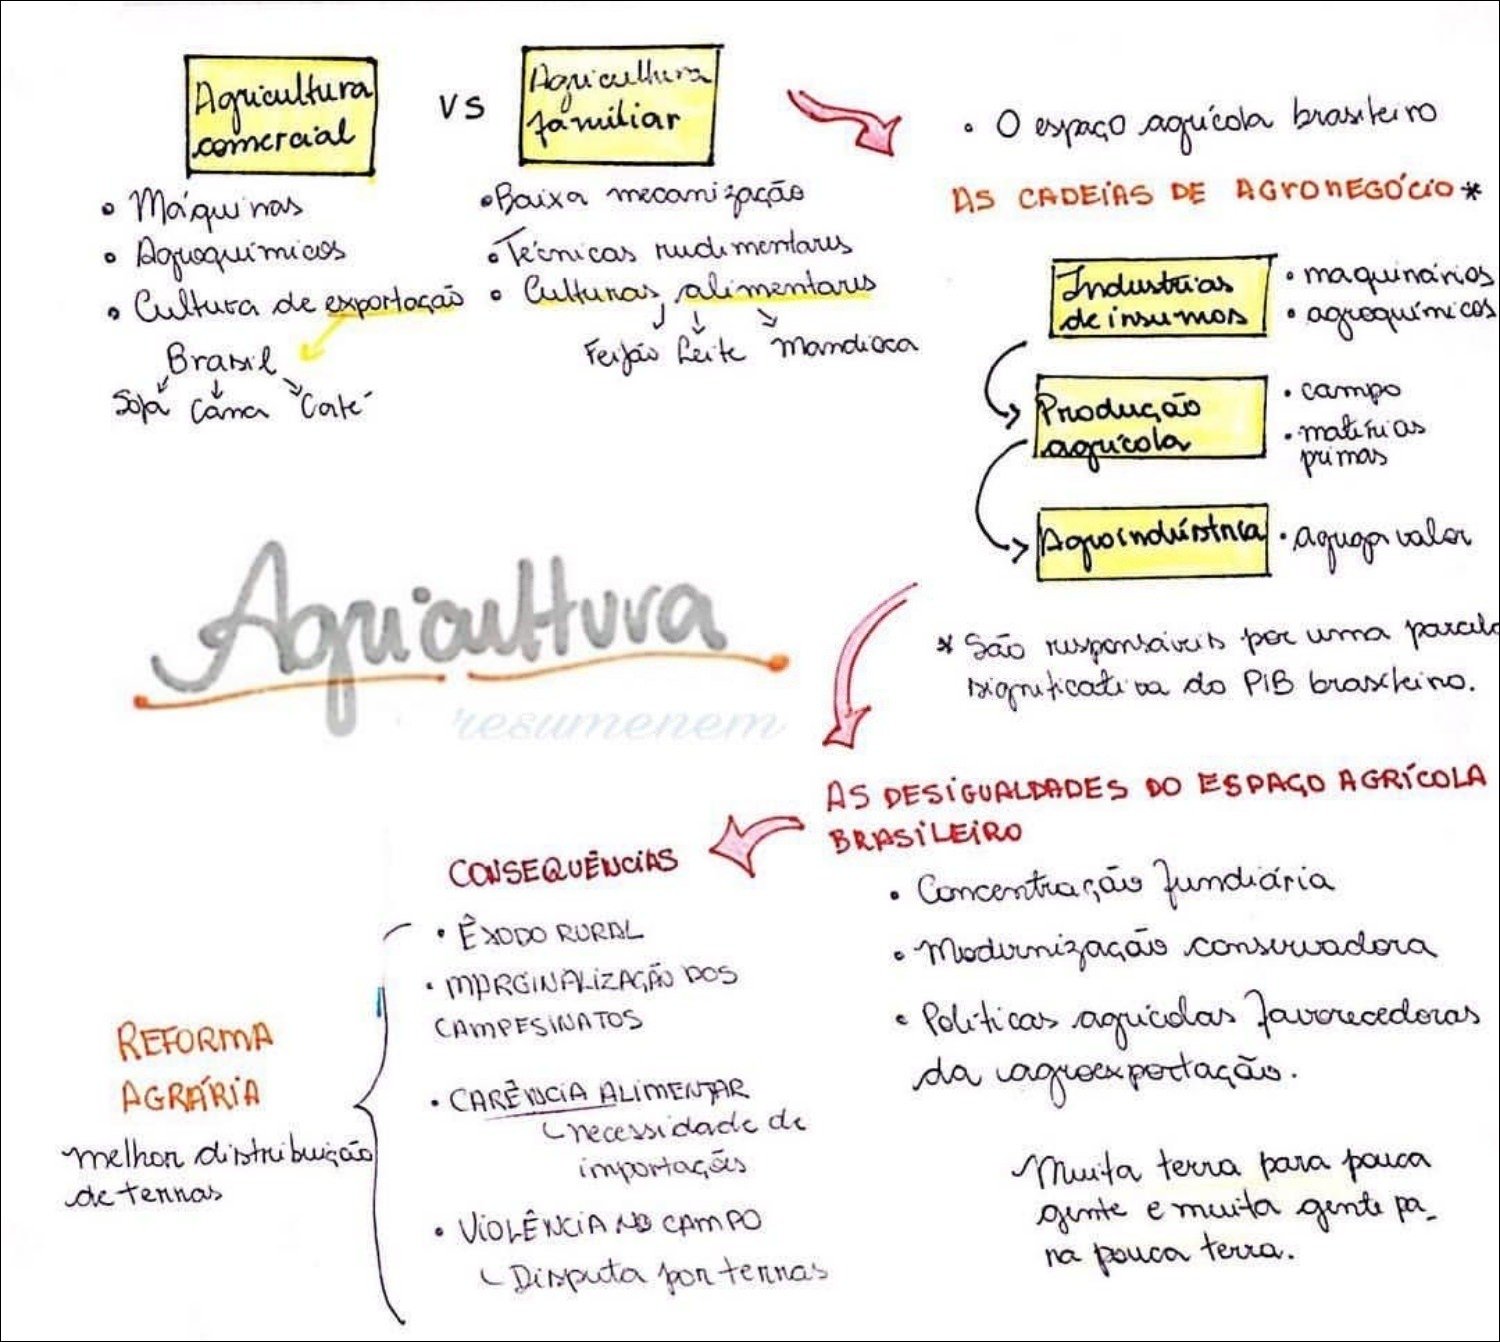 Agricultura
comercial
vs
Agricultura
familiar
• Máquinas
• Agroquímicos
• Cultura de exportação
Brasil
Soja Cana Café
• Baixa mecanização
• Técnicas rudimentares
• Culturas alimentares
Feijão Leite Mandioca
• O espaço agrícola brasileiro
AS CADEIAS DE AGRONEGÓCIO *
Industrias
de insumos
• maquinários
• agroquímicos
Produção
agrícola
• campo
• matérias
primas
Agroindústria
• agrega valor
* São responsáveis por uma parcela
significativa do PIB brasileiro.
Agricultura
resumenem
AS DESIGUALDADES DO ESPAÇO AGRÍCOLA
BRASILEIRO
• Concentração fundiária
• Modernização conservadora
• Políticas agrícolas favorecedoras
da agroexportação.
Muita terra para pouca
gente e muita gente pa_
ra pouca terra.
CONSEQUÊNCIAS
• ÊXODO RURAL
• MARGINALIZAÇÃO DOS
CAMPESINATOS
• CARÊNCIA ALIMENTAR
necessidade de
importações
• VIOLÊNCIA NO CAMPO
Disputa por terras
REFORMA
AGRÁRIA
melhor distribuição
de terras